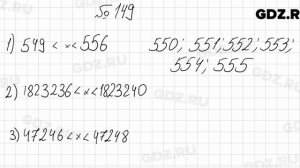 № 149
GDZ.RU
1) 549 < x < 556 550; 551; 552; 553;
554; 555
2) 1823236 < x < 1823240
3) 47246 < x < 47248